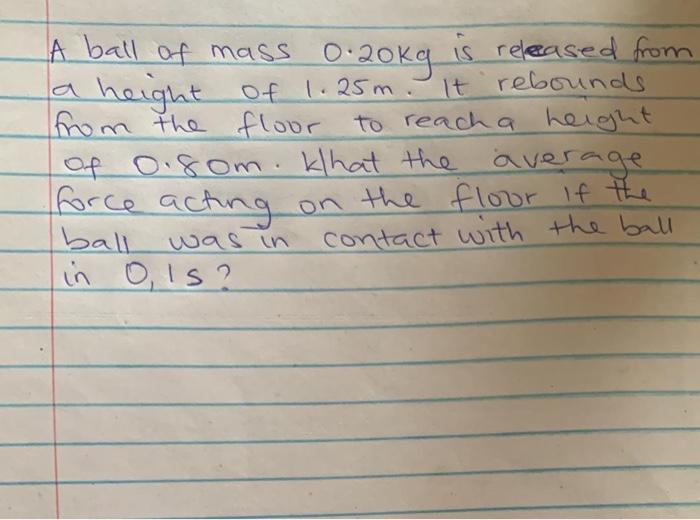 A ball of mass 0.20kg is released from
a height of 1.25m. It rebounds
from the floor to reach a height
of 0.80m. What the average
force acting on the floor if the
ball was in contact with the ball
in 0,1s?